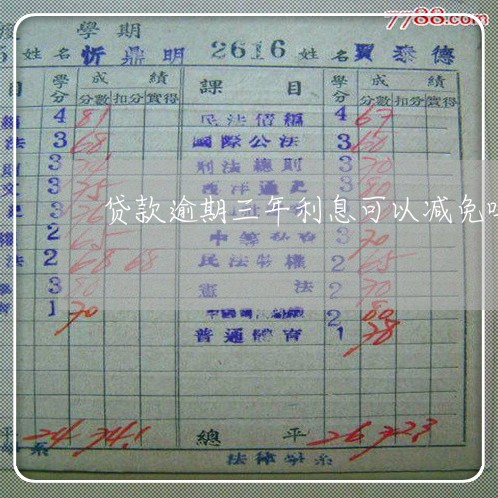 7788.com
學期
姓名 忻鼎明 2616 姓名 賈泰德
目 學分 成績 課目 學分 成績
分數 扣分 實得 分數 扣分 實得
4 81 民法債編 4 67
法 3 68 國際公法 3 60
3 刑法總則 3 70
文 3 75 西洋通史 3 80
史 3 76 3
貸款逾期三年利息可以减免吗
權 2 65 3 70
法 2 68 68 民法物權 2 65
3 80 憲法 2 70
1 70 2 80
普通體育 1 78
平 24 74.1 總平 26 72.3
系 法律學系